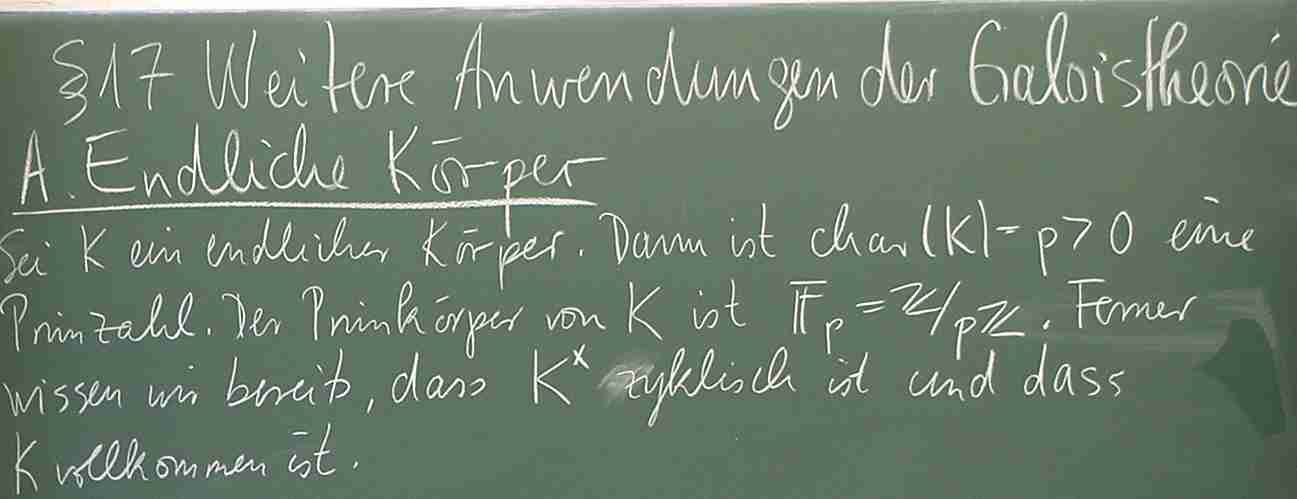 §17 Weitere Anwendungen der Galoistheorie
A. Endliche Körper
Sei K ein endlicher Körper. Dann ist char(K) = p > 0 eine
Primzahl. Der Primkörper von K ist 𝔽ₚ = ℤ/pℤ. Ferner
wissen wir bereits, dass K^× zyklisch ist und dass
K vollkommen ist.